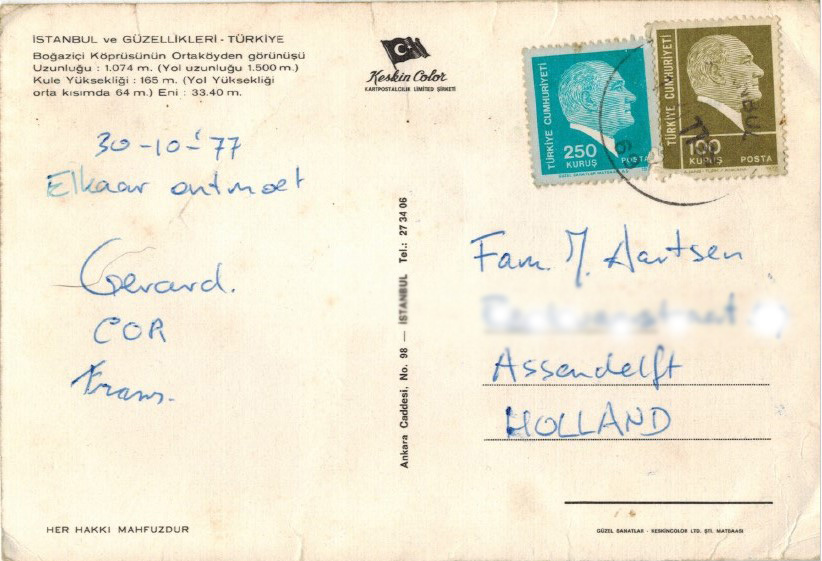 İSTANBUL ve GÜZELLİKLERİ - TÜRKİYE
Boğaziçi Köprüsünün Ortaköyden görünüşü
Uzunluğu : 1.074 m. (Yol uzunluğu 1.500 m.)
Kule Yüksekliği : 165 m. (Yol Yüksekliği
orta kısımda 64 m.) Eni : 33.40 m.
Keskin Color
KARTPOSTALCILIK LİMİTED ŞİRKETİ
TÜRKİYE CUMHURİYETİ
250
KURUŞ POSTA
TÜRKİYE CUMHURİYETİ
100
KURUŞ POSTA
30-10-'77
Elkaar ontmoet
Gerard.
COR
Frans.
Ankara Caddesi, No. 98 — İSTANBUL Tel.: 27 34 06
Fam. M. Aartsen
Assendelft
HOLLAND
HER HAKKI MAHFUZDUR
GÜZEL SANATLAR - KESKİNCOLOR LTD. ŞTİ. MATBAASI